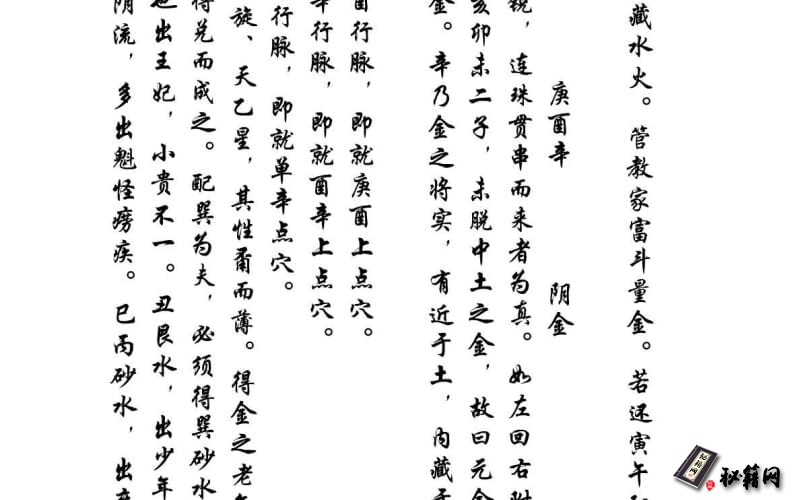 藏水火。管教家富斗量金。若还寅午
庚酉辛 阴金
锐，连珠贯串而来者为真。如左回右附
亥卯未二子，未脱中土之金，故曰元金
金。辛乃金之将实，有近于土，内藏
酉行脉，即就庚酉上点穴。
辛行脉，即就酉辛上点穴。
行脉，即就单辛点穴。
旋、天乙星，其性甭而薄。得金之老
得兑而成之。配巽为夫，必须得巽砂水
也出王妃，小贵不一。丑艮水，出少年
阴流，多出魁怪痨疾。巳丙砂水，出
秘籍网